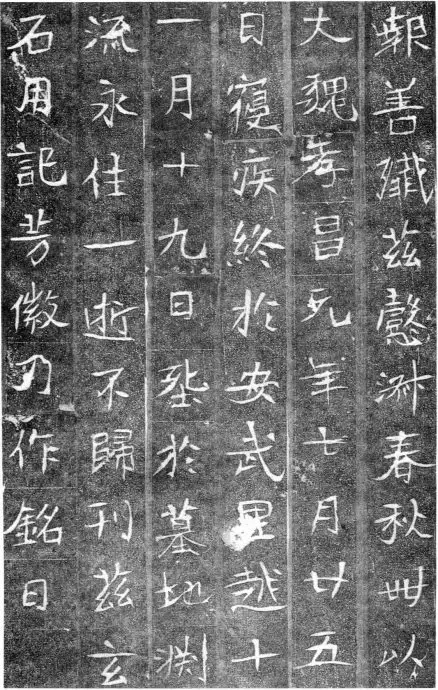 報善殲茲懿淑春秋卌以
大魏孝昌元年七月廿五
日寢疾終於安武里越十
一月十九日於墓地渕
流永住一逝不歸刊茲玄
石用記芳徽乃作銘曰